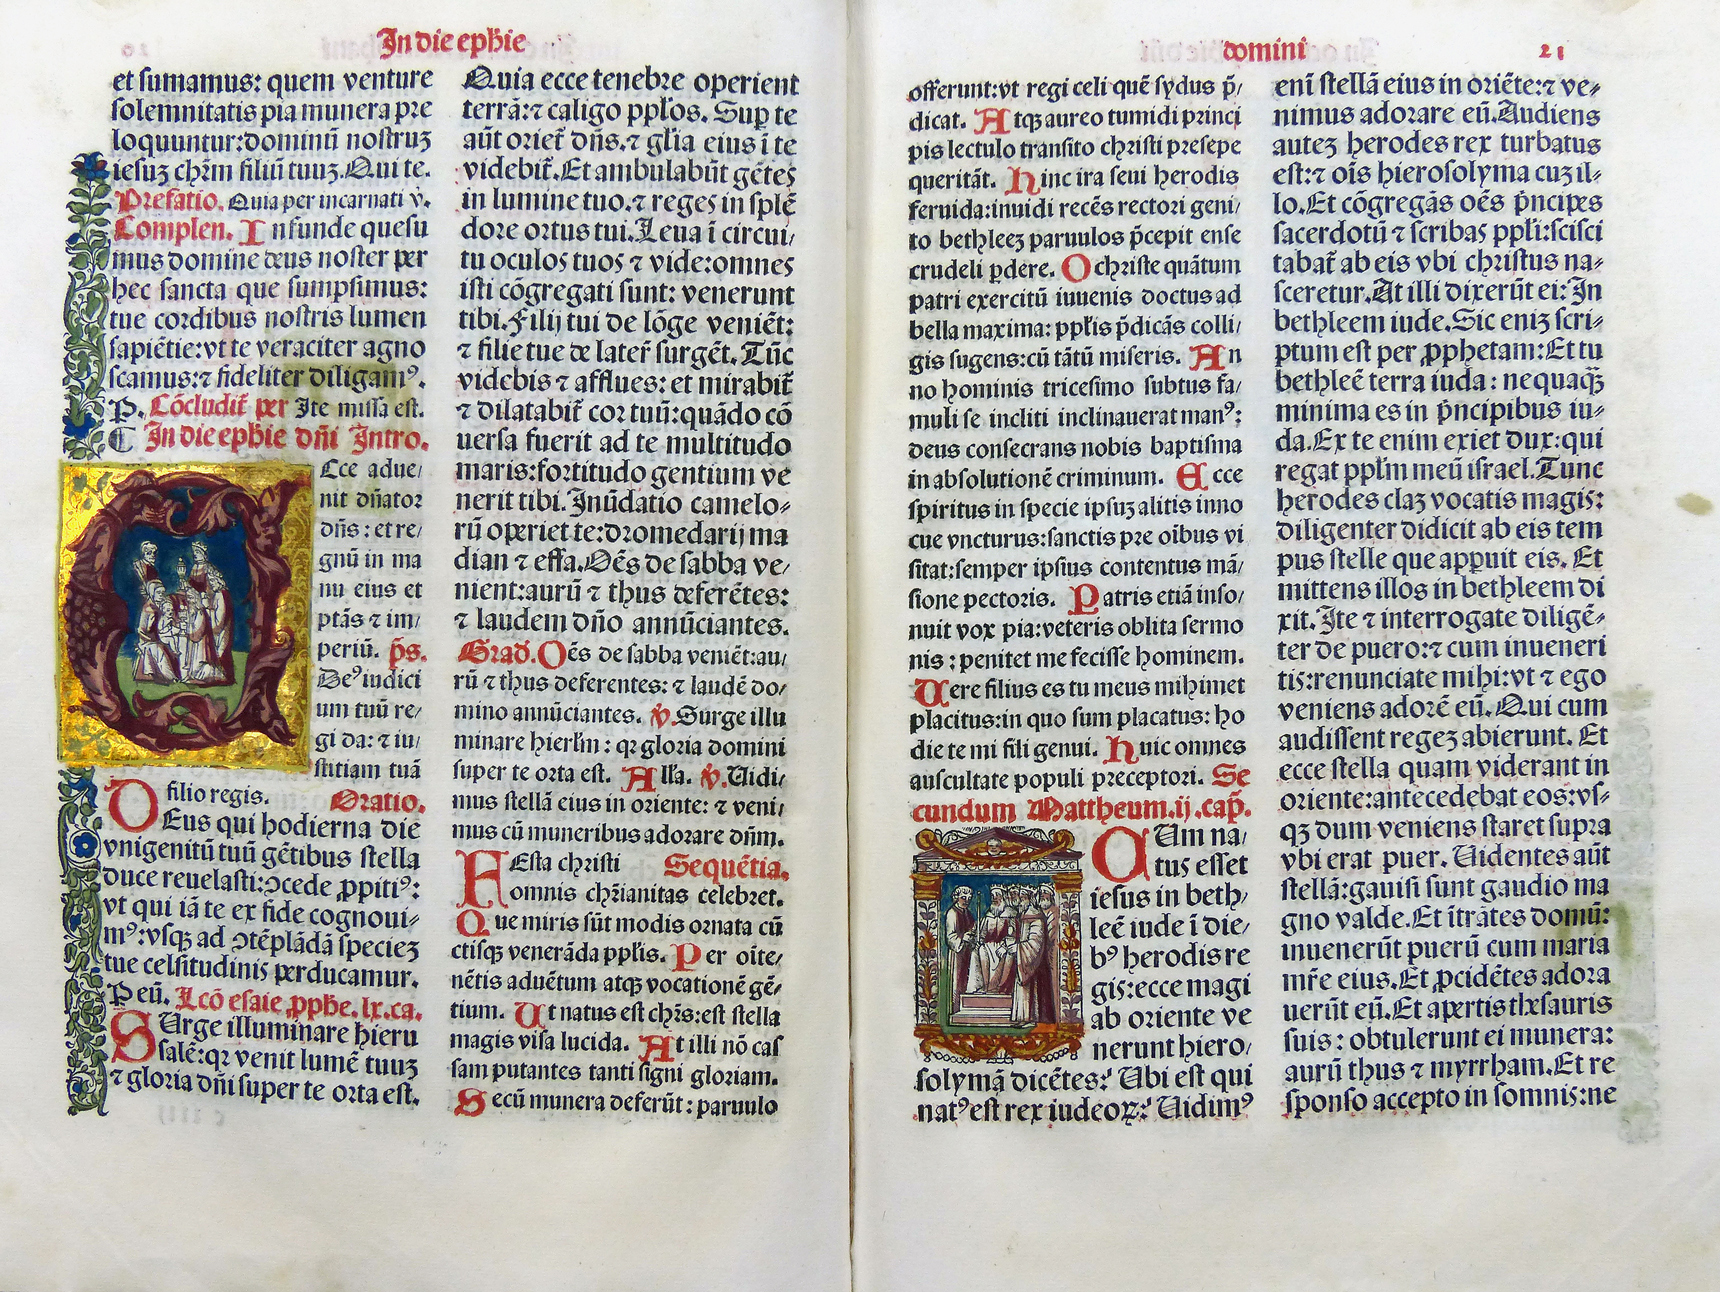 In die ephie
et sumamus: quem venture
solemnitatis pia munera pre
loquuntur:dominū nostruꝫ
iesuꝫ chr̄m filiū tuuꝫ.Qui te.
Prefatio. Quia per incarnati v̄.
Complen. Infunde quesu
mus domine deus noster per
hec sancta que sumpsimus:
tue cordibus nostris lumen
sapiētie:vt te veraciter agno
scamus:⁊ fideliter diligamꝰ.
P. Cōcludit̄ per Ite missa est.
¶ In die ephie dn̄i Intro.
Ecce adue/
nit dn̄ator
dn̄s : et re/
gnū in ma
nu eius et
ptās ⁊ im/
periū. p̄s.
Deꝰ iudici
um tuū re/
gi da: ⁊ iu/
stitiam tuā
filio regis. Oratio.
DEus qui hodierna die
vnigenitū tuū gētibus stella
duce reuelasti:ↄcede ꝓpitiꝰ:
vt qui iā te ex fide cognoui⸗
mꝰ:vsqꝫ ad ↄtēplādā specieꝫ
tue celsitudinis perducamur.
P eū. Lcō esaie ꝓphe. lx.ca.
SUrge illuminare hieru
salē:qꝛ venit lumē tuuꝫ
⁊ gloria dn̄i super te orta est.
Quia ecce tenebre operient
terrā:⁊ caligo ppl̄os. Suꝑ te
aūt oriet̄ dn̄s.⁊ gl̄ia eius ī te
videbit̄.Et ambulabūt gētes
in lumine tuo.⁊ reges in splē
dore ortus tui.Leua ī circui/
tu oculos tuos ⁊ vide:omnes
isti cōgregati sunt: venerunt
tibi.Filij tui de lōge veniēt:
⁊ filie tue de later̄ surgēt.Tūc
videbis ⁊ afflues: et mirabit̄
⁊ dilatabit̄ cor tuū:quādo cō
uersa fuerit ad te multitudo
maris:fortitudo gentium ve
nerit tibi.Inūdatio camelo⸗
rū operiet te:dromedarij ma
dian ⁊ effa.Oēs de sabba ve/
nient:aurū ⁊ thus deferētes:
⁊ laudem dn̄o annūciantes.
Grad.Oēs de sabba veniēt:au/
rū ⁊ thus deferentes: ⁊ laudē do/
mino annūciantes. ℣.Surge illu
minare hierl̄m : qꝛ gloria domini
super te orta est. All̄a. ℣.Uidi/
mus stellā eius in oriente: ⁊ veni/
mus cū muneribus adorare dn̄m.
FEsta christi Sequētia.
omnis chr̄ianitas celebret.
Que miris sūt modis ornata cū
ctisqꝫ venerāda ppl̄is. Per oīte/
nētis aduētum atqꝫ vocationē gē/
tium. Ut natus est chr̄s:est stella
magis visa lucida. At illi nō cas
sam putantes tanti signi gloriam.
Secū munera deferūt : paruulo
domini 21
offerunt:vt regi celi quē sydus p̄/
dicat. Atqꝫ aureo tumidi princi
pis lectulo transito christi presepe
queritāt. Hinc ira seui herodis
feruida:inuidi recēs rectori geni/
to bethleeꝫ paruulos p̄cepit ense
crudeli ꝑdere. O christe quātum
patri exercitū iuuenis doctus ad
bella maxima: ppl̄is p̄dicās colli/
gis sugens:cū tātū miseris. An
no hominis tricesimo subtus fa/
muli se incliti inclinauerat manꝰ:
deus consecrans nobis baptisma
in absolutionē criminum. Ecce
spiritus in specie ipsuꝫ alitis inno
cue vncturus:sanctis pre oībus vi
sitat:semper ipsius contentus mā/
sione pectoris. Patris etiā inso/
nuit vox pia:veteris oblita sermo
nis : penitet me fecisse hominem.
Uere filius es tu meus mihimet
placitus:in quo sum placatus: ho
die te mi fili genui. Huic omnes
auscultate populi preceptori. Se
cundum Mattheum.ij.cap̄.
CUm na/
tus esset
iesus in beth/
leē iude ī die/
bꝰ herodis re
gis:ecce magi
ab oriente ve
nerunt hiero/
solymā dicētes: Ubi est qui
natꝰ est rex iudeoꝝ: Uidimꝰ
enī stellā eius in oriēte:⁊ ve⸗
nimus adorare eū.Audiens
auteꝫ herodes rex turbatus
est:⁊ oīs hierosolyma cuꝫ il⸗
lo.Et cōgregās oēs p̄ncipes
sacerdotū ⁊ scribas ppl̄i:scisci
tabat̄ ab eis vbi christus na⸗
sceretur.At illi dixerūt ei: In
bethleem iude.Sic eniꝫ scri⸗
ptum est per ꝓphetam:Et tu
bethleē terra iuda : nequaqꝫ̄
minima es in p̄ncipibus iu⸗
da.Ex te enim exiet dux:qui
regat ppl̄m meū israel.Tunc
herodes claꝫ vocatis magis:
diligenter didicit ab eis tem
pus stelle que apparuit eis. Et
mittens illos in bethleem di
xit.Ite ⁊ interrogate diligē⸗
ter de puero:⁊ cum inueneri
tis:renunciate mihi:vt ⁊ ego
veniens adorē eū.Qui cum
audissent regeꝫ abierunt. Et
ecce stella quam viderant in
oriente:antecedebat eos:vs⸗
qꝫ dum veniens staret supra
vbi erat puer. Uidentes aūt
stellā:gauisi sunt gaudio ma
gno valde.Et ītrātes domū:
inuenerūt puerū cum maria
mr̄e eius.Et ꝓcidētes adora
uerūt eū.Et apertis thesauris
suis : obtulerunt ei munera:
aurū thus ⁊ myrrham.Et re
sponso accepto in somnis:ne